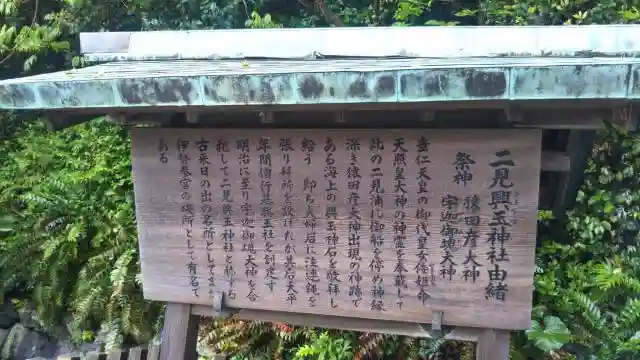 二見興玉神社由緒
祭神 猿田彦大神
宇迦御魂大神
垂仁天皇の御代皇女倭姫命
天照皇大神の神霊を奉戴して
此の二見浦に御船を停め神縁
深き猿田彦大神出現の神跡で
ある海上の興玉神石を敬拝し
給う 即ち夫婦岩に注連縄を
張り拝所を設けたが是の天平
年間僧行基興玉社を創建す
明治に至り宇迦御魂大神を合
祀して二見興玉神社と称する
古来日の出の名所としてまた
伊勢参宮の祓所として有名で
ある